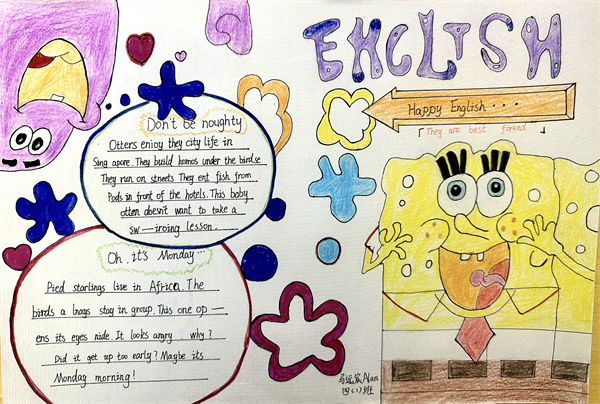 ENGLISH
Happy English...
「They are best forend」
Don't be noughty
Otters enjoy they city life in
Sing apore. They build homos under the birdse
They run on streets They ent fish from
Pods in front of the hotels. This baby
otten doesn't want to take a
sw—iroing lesson.
Oh, it's Monday...
Pied starlings live in Africa. The
birds a lnags stag in group. This one op—
ens its eyes nide. It looks angry why?
Did it get up too early? Maybe its
Monday morning!
Alan
四(1)班